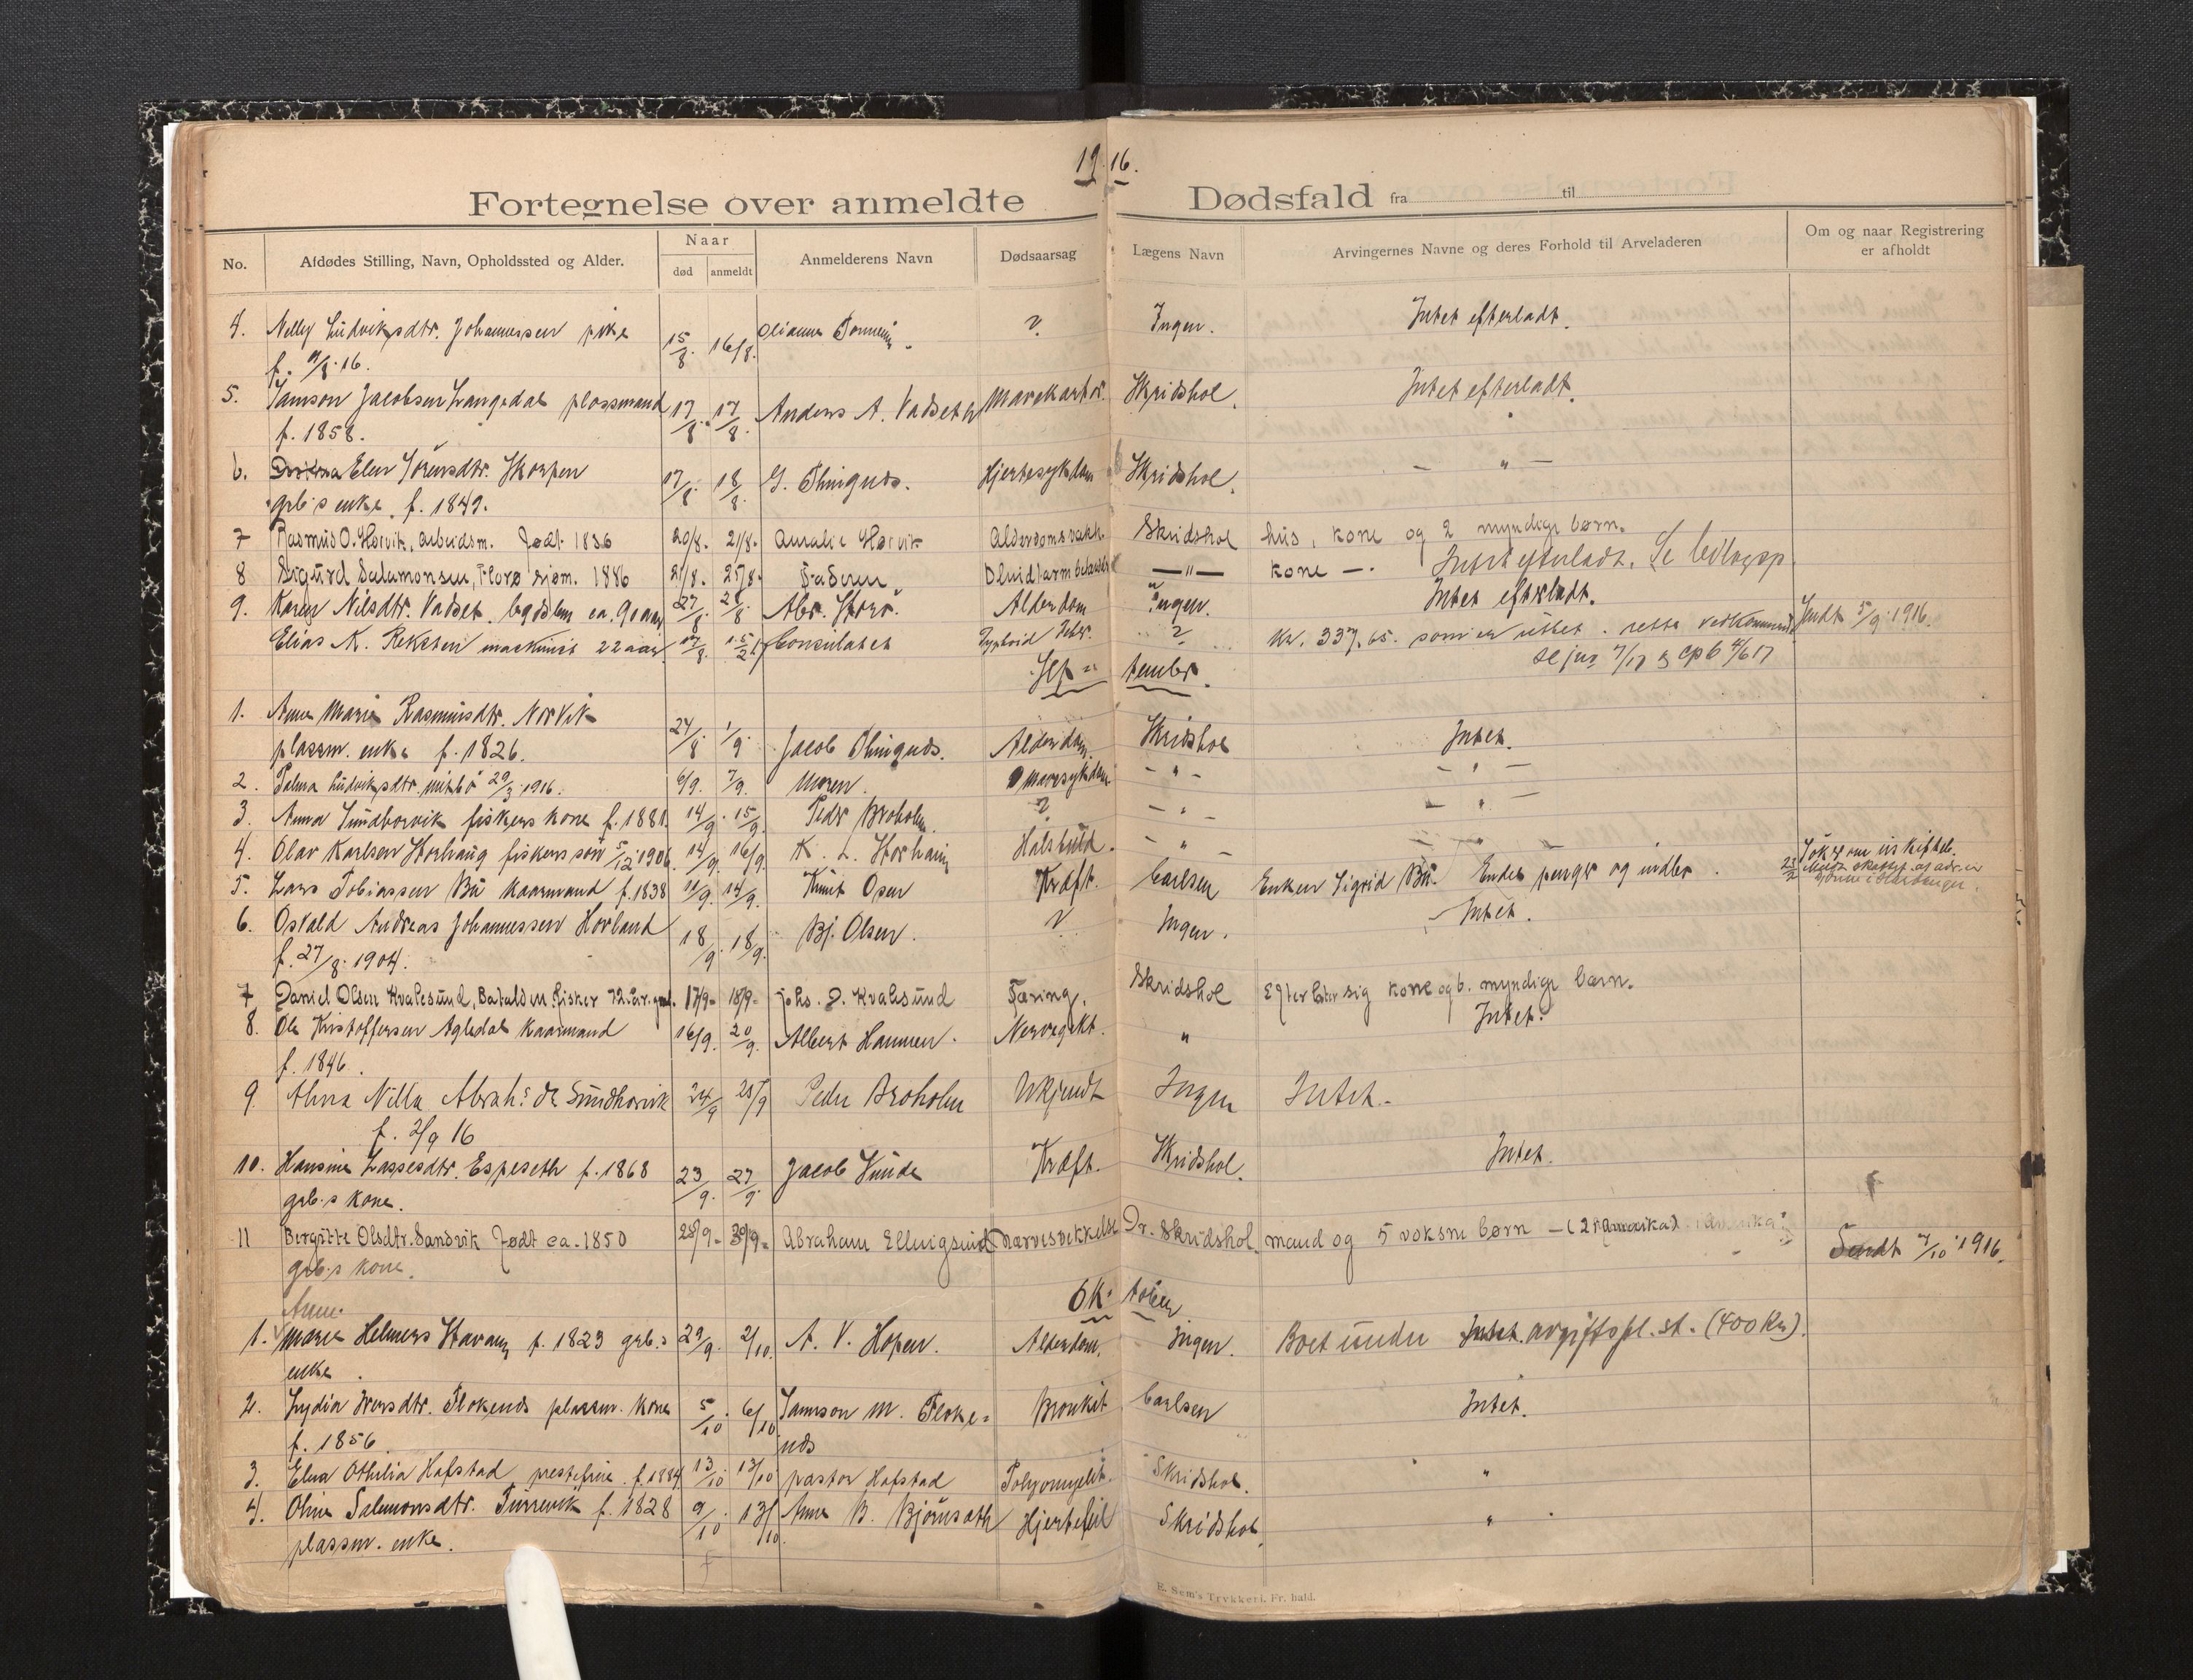 19 16.
Fortegnelse over anmeldte Dødsfald fra til
No. Afdødes Stilling, Navn, Opholdssted og Alder. Naar død anmeldt Anmelderens Navn Dødsaarsag Lægens Navn Arvingernes Navne og deres Forhold til Arveladeren Om og naar Registrering er afholdt
4. Nelly Ludviksdtr. Johannessen pike 15/8. 16/8. ? Ingen. Intet efterladt.
f. /8. 16.
5. Samson Jacobsen Langedal plassmand 17/8. 17/8. Anders A. Vadseth Skridshol. Intet efterladt.
f. 1858.
6. Elen Sörensdtr. Skorpen 17/8. 18/8. Hjertesykdom Skridshol. - " -
grb.s enke. f. 1849.
7 Rasmus O. Horvik, arbeidsm. Født 1836 20/8. 21/8. Amalie Horvik Alderdomsvakk. Skridshol hus, kone og 2 myndige børn.
8 Sigurd Salamonsen, Florø sjøm. 1886 21/8. 25/8. Faderen — " — kone —. Intet efterladt. Se
9. Karen Nilsdtr. Vadset. ca. 90 aar 27/8 28/8. Alderdom Ingen. Intet efterladt.
Elias K. Reksten maskinist 22 aar 17/8. Consulatet Typhoid Feber. ? Kr. 337.65. som er rette vedkommende Sendt 5/9. 1916.
Sep= tember.
1. Anne Marie Rasmusdtr. Norvik
plassm. enke f. 1826. 24/8. 1/9. Jacob Alderdom. Skridshol Intet.
2. Palma Ludviksdtr. 29/3. 1916. 6/9. 7/9. Moren. Mavesykdom - " - - " -
3. Anna Sundhorvik fiskers kone f. 1881. 14/9. 15/9. Peder Broholm. ? - " - - " -
4. Olav Karlsen Storhaug fiskers sön 5/12 1906. 14/9. 16/9. K. L. Storhaug Halsbuld. - " -
5. Lars Tobiassen Bu kaarmand f. 1838 11/9. 14/9. Knut Osen Kræft. Carlsen Enken Sigrid Bu. Endel penger og indbo.
6. Osvald Andreas Johannessen Hovland 18/9. 18/9. Bj. Olsen. ? Ingen. Intet.
f. 27/8. 1904.
7 Daniel Olsen Kvalesund, Batalden fisker 72 aar. 17/9 18/9 Johs. D. Kvalesund Tæring. Skridshol Efterlater sig kone og 6. myndige børn.
8. Ole Kristoffersen Agledal kaarmand 16/9. 20/9. Albert Hammen. " Intet.
f. 1846.
9. Alma Nilla Abrahs. dtr. Sundhorvik 24/9 25/9 Peder Broholm Ukjendt Ingen Intet.
f. 2/9 16
10. Hansine Lassesdtr. Espeseth f. 1868 23/9. 27/9. Jacob Sunde Kræft. Skridshol. Intet.
grb.s kone.
11 Bergitte Olsdtr. Sandvik Født ca. 1850 28/9. 30/9. Abraham Ellingsund Nærvesvekkelse Dr. Skridshol mand og 5 voksne børn — (2 i Amerika) Sendt 7/10. 1916.
grb.s kone.
Ok= tober
Anne
1. Marie Helmers Stavang f. 1823 grb.s 29/9. 2/10. A. V. Hopen. Alderdom. Ingen. Boet under Intet. avgiftspl. st. (400 Kr).
enke.
2. Lydia Iversdtr. Flokenes plassm. kone 5/10. 6/10 Samson M. Floke= Bronkit Carlsen Intet.
f. 1856 nes
3. Elna Othilia Hafstad prestefrue. f. 1884 13/10 13/10 pastor Hafstad Skridshol. "
4. Oline Salomonsdtr. f. 1828 9/10. 13/10. Anne B. Björnseth Hjertefeil Skridshol. "
plassm. enke.
E. Sem's Trykkeri, Fr. hald.